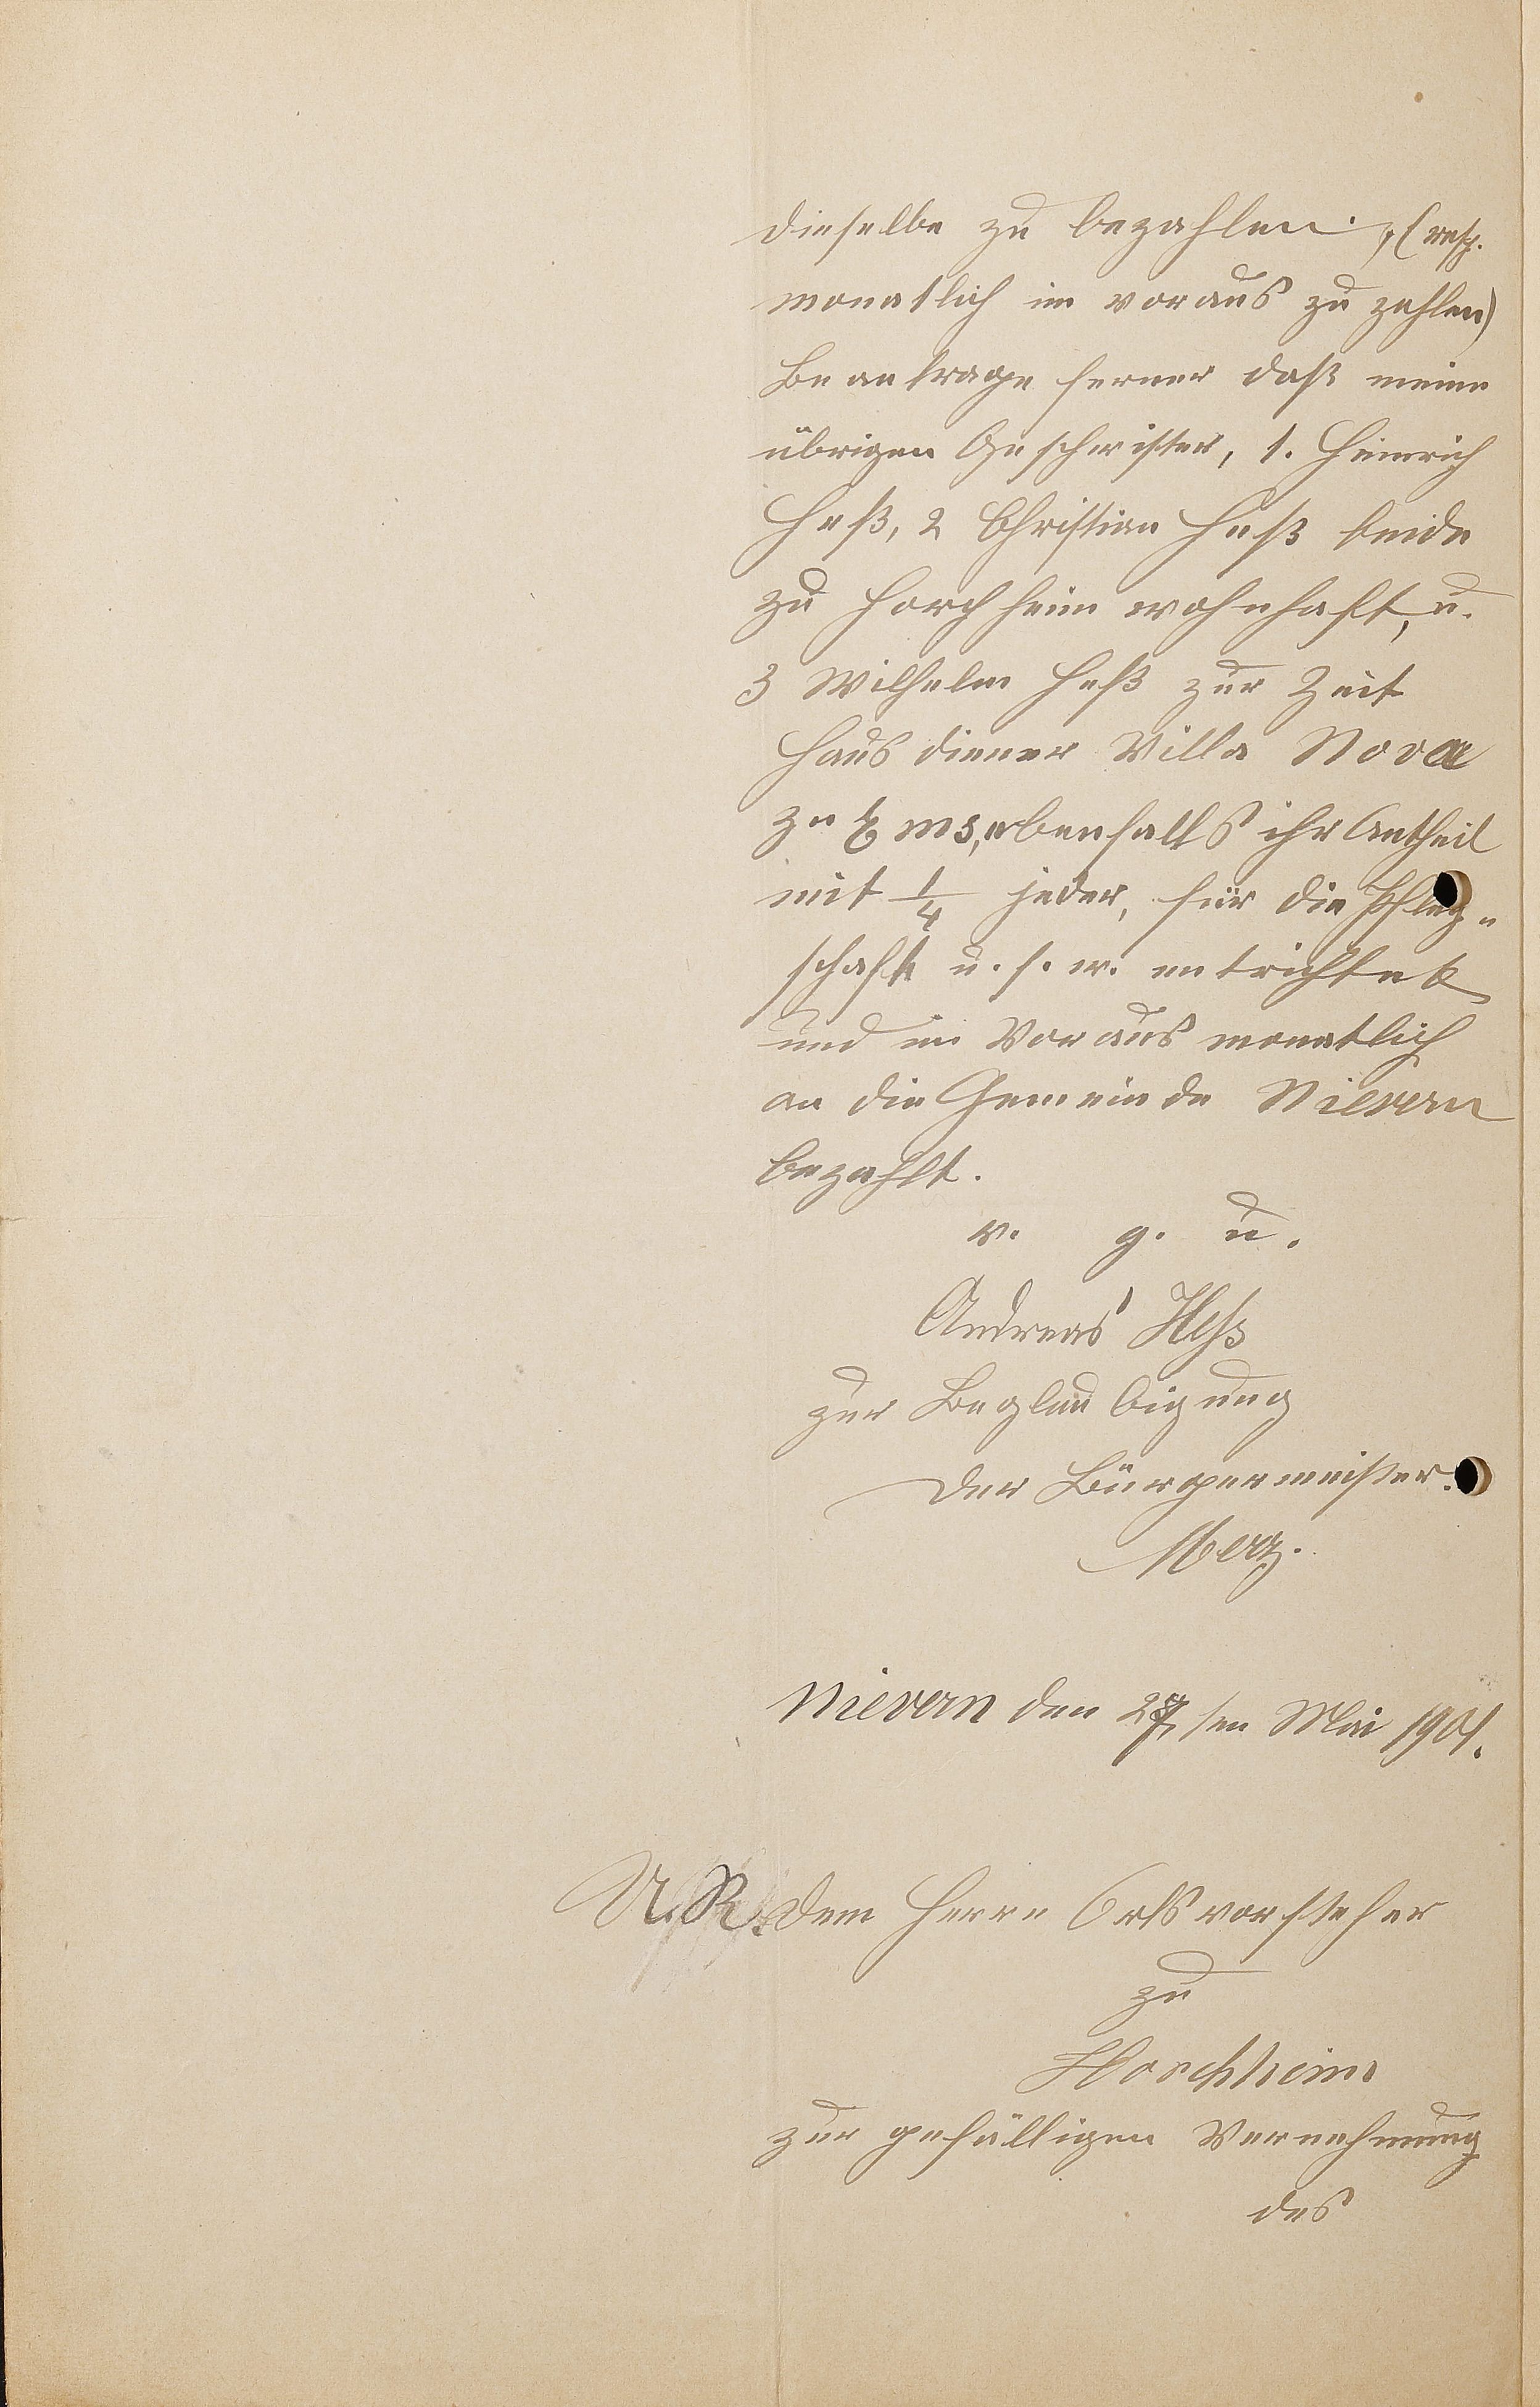 dieselbe zu bezahlen, (resp.
monatlich im voraus zu zahlen)
Beantrage ferner daß meine
übrigen Geschwister, 1. Heinrich
Heß, 2 Christian Heß beide
zu Horchheim wohnhaft, u.
3 Wilhelm Heß zur Zeit
Hausdiener Villa Nova
zu Ems, ebenfalls ihr Antheil
mit 1/4 jeder, für die Pfleg-
schaft u. s. w. entrichtet
und im Voraus monatlich
an die Gemeinde Nievern
bezahlt.
v. g. u.
Andreas Heß
zur Beglaubigung
Der Bürgermeister.
Nievern den ten Mai 1901.
U. R. Dem Herrn Ortsvorsteher
zu
Horchheim
zur gefälligen Vernehmung
des